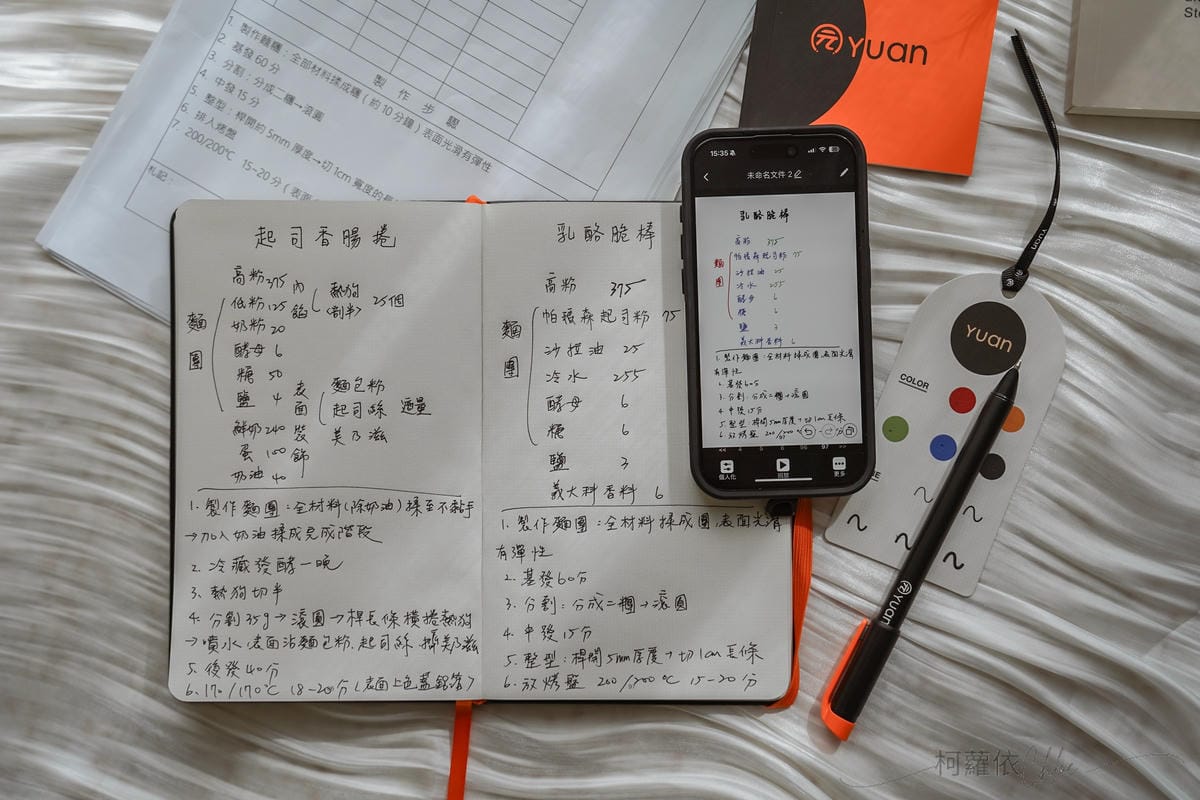 製 作 步 驟
1. 製作麵糰：全部材料揉成糰（約10分鐘）表面光滑有彈性
2. 基發60分
3. 分割：分成二糰→滾圓
4. 中發15分
5. 整型：桿開約5mm厚度→切1cm寬度的
6. 排入烤盤
7. 200/200℃ 15~20分（表面
札記：
元 Yuan
起司香腸捲
麵團
高粉 375
低粉 125
奶粉 20
酵母 6
糖 50
鹽 4
鮮奶 240
蛋 100
奶油 40
內餡
熱狗(割半) 25個
表面裝飾
麵包粉
起司絲 適量
美乃滋
1. 製作麵團：全材料(除奶油)揉至不黏手
→加入奶油揉成完成階段
2. 冷藏發酵一晚
3. 熱狗切半
4. 分割35g→滾圓→桿長條橫捲熱狗
→噴水、表面沾麵包粉、起司絲、擠美乃滋
5. 後發40分
6. 170/170℃ 18-20分(表面上色蓋鋁箔)
乳酪脆棒
麵團
高粉 375
帕瑪森起司粉 75
沙拉油 25
冷水 255
酵母 6
糖 6
鹽 3
義大利香料 6
1. 製作麵團：全材料揉成團，表面光滑
有彈性
2. 基發60分
3. 分割：分成二糰→滾圓
4. 中發15分
5. 整型：桿開5mm厚度→切1cm長條
6. 放烤盤 200/200℃ 15-20分
15:35
未命名文件 2
乳酪脆棒
麵團
高粉 375
帕瑪森起司粉 75
沙拉油 25
冷水 255
酵母 6
糖 6
鹽 3
義大利香料 6
1. 製作麵團：全材料揉成團，表面光滑
有彈性
2. 基發60分
3. 分割：分成二糰→滾圓
4. 中發15分
5. 整型：桿開5mm厚度→切1cm長條
6. 放烤盤 200/200℃
個人化
回放
更多
Yuan
Yuan
COLOR
元Yuan
柯蘿依Chloe